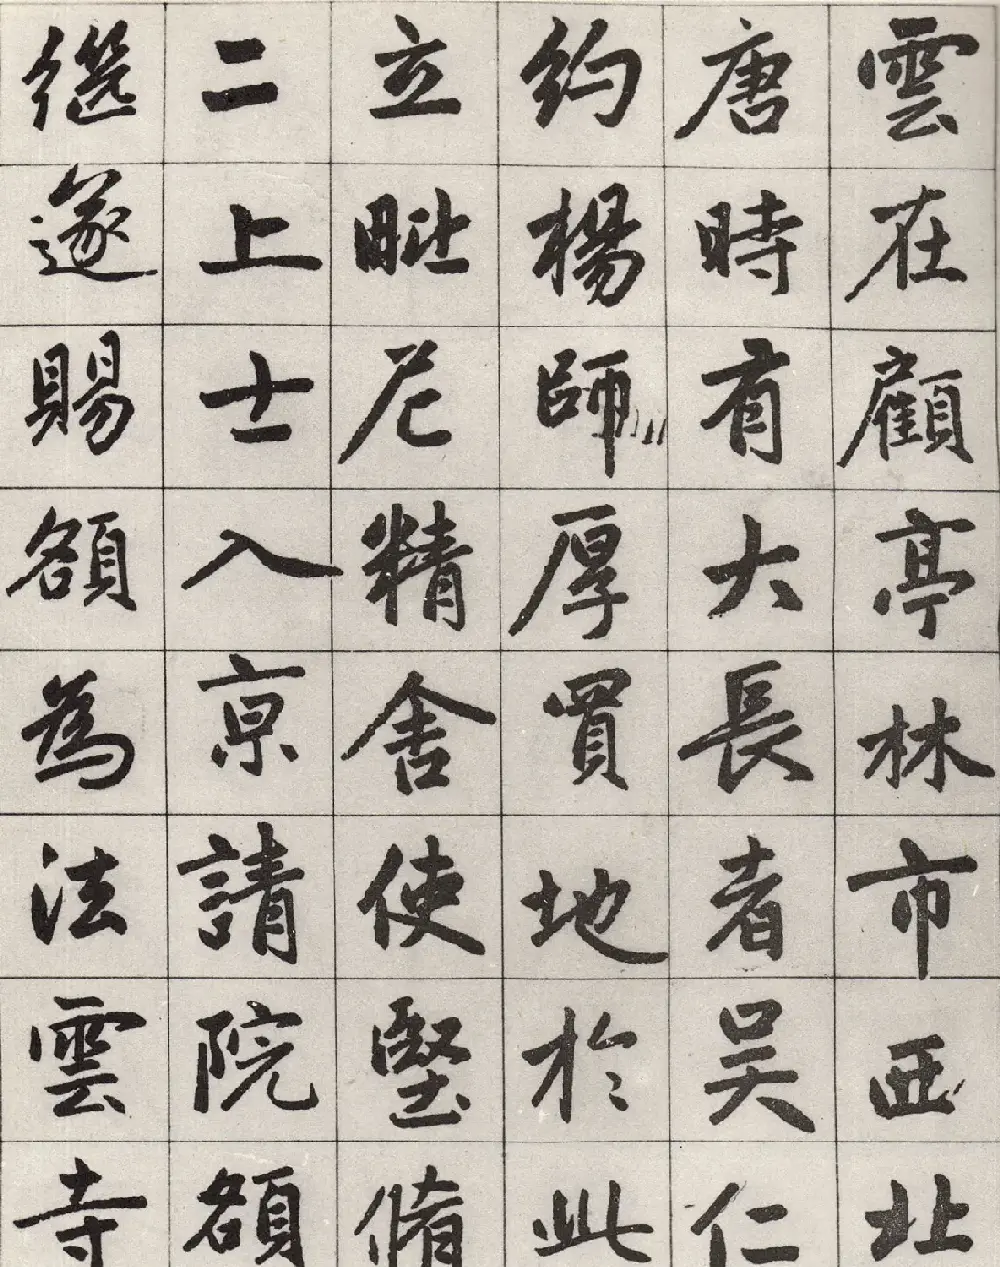 雲在顧亭林市西北
唐時有大長者吴仁
約楊師厚買地於此
立毗尼精舍使堅脩
二上士入亰請院額
遂賜額為法雲寺